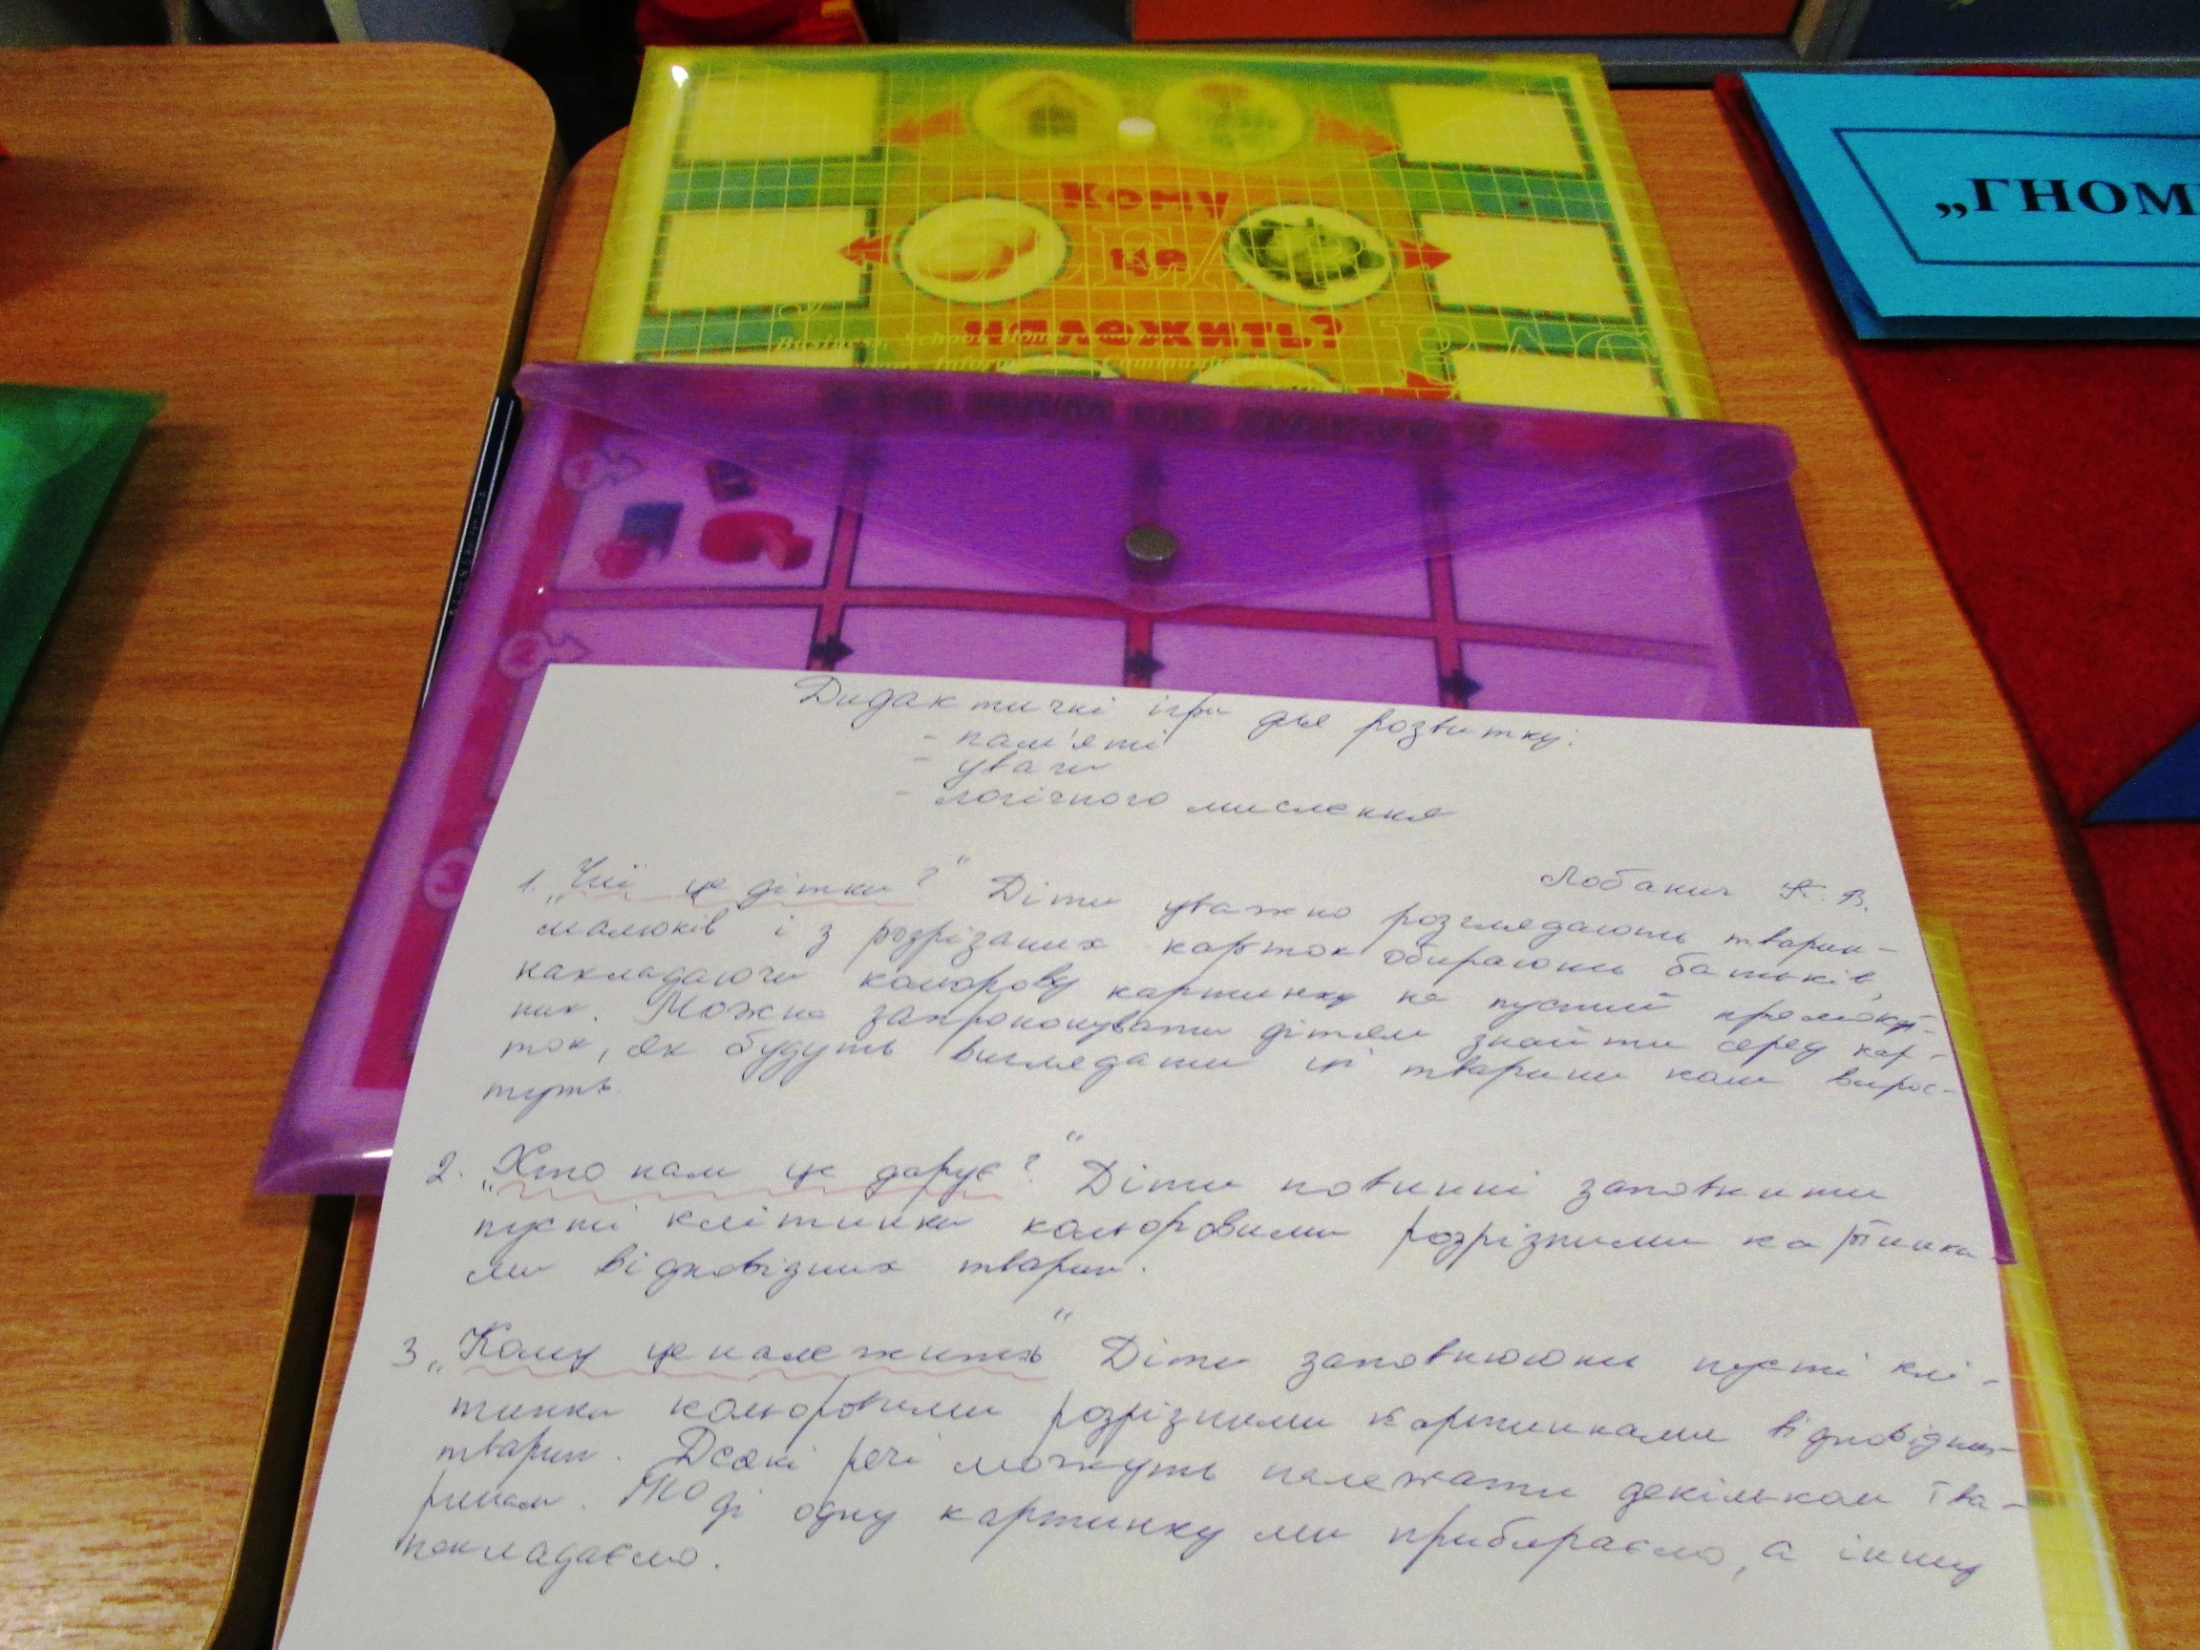 Кому
це
належить?
„ГНОМ
Дидактичні ігри для розвитку:
- пам'яті
- уваги
- логічного мислення
Лобанич К. В.
1. „Чиї це дітки?" Діти уважно розглядають тварин-
малюків і з розрізаних карток обирають батьків,
накладаючи кольорову картинку на пустий прямокут-
ник. Можна запропонувати дітям знайти серед кар-
ток, як будуть виглядати ці тварини коли вирос-
туть.
2. „Хто нам це дарує?" Діти повинні заповнити
пусті клітинки кольоровими розрізними картинка-
ми відповідних тварин.
3 „Кому це належить" Діти заповнюють пусті клі-
тинки кольоровими розрізними картинками відповідних
тварин. Деякі речі можуть належати декільком тва-
ринам. Тоді одну картинку ми прибираємо, а іншу
накладаємо.